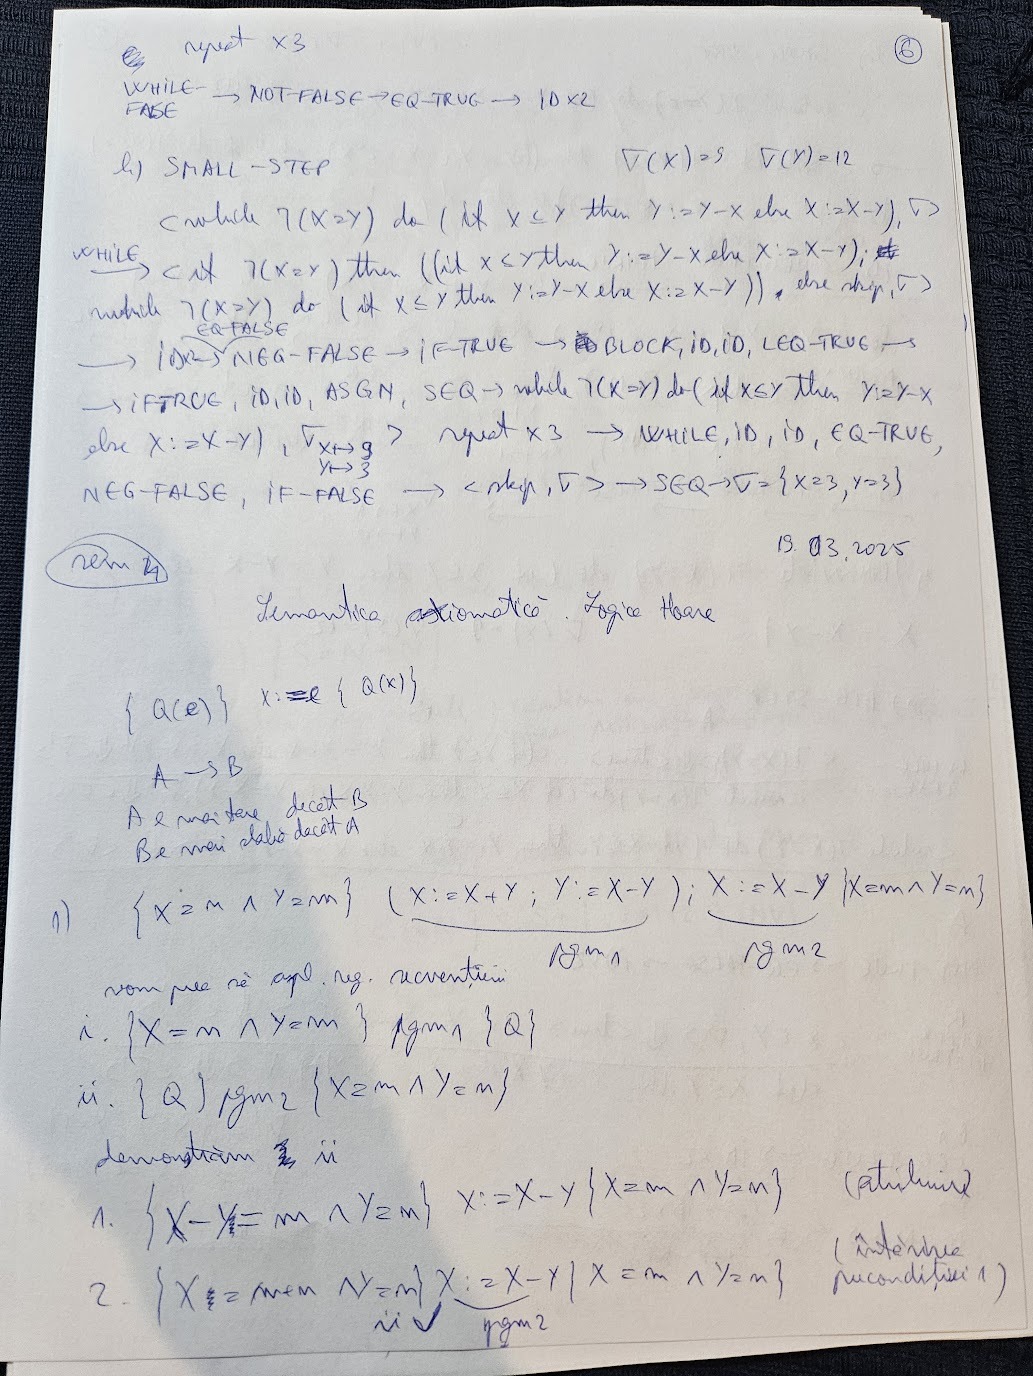 repeat x3
6
WHILE-FASE → NOT-FALSE → EQ-TRUE → ID x2
b) SMALL-STEP ∇(X)=9 ∇(Y)=12
<while ⌉(X=Y) do (if X≤Y then Y:=Y-X else X:=X-Y), ∇>
WHILE → <if ⌉(X=Y) then ((if X≤Y then Y:=Y-X else X:=X-Y);
while ⌉(X=Y) do (if X≤Y then Y:=Y-X else X:=X-Y)), else skip, ∇>
EQ-FALSE
→ IDx2 → NEG-FALSE → IF-TRUE → BLOCK, ID, ID, LEQ-TRUE →
→ IFTRUE, ID, ID, ASGN, SEQ → while ⌉(X=Y) do (if X≤Y then Y:=Y-X
else X:=X-Y), ∇ X↦9 > repeat x3 → WHILE, ID, ID, EQ-TRUE,
Y↦3
NEG-FALSE, IF-FALSE → <skip, ∇> → SEQ → ∇={X=3, Y=3}
19.03.2025
sem 4
Semantica axiomatică. Logica Hoare
{Q(e)} X:=e {Q(x)}
A → B
A e mai tare decât B
B e mai slabă decât A
1) {X=n ∧ Y=m} (X:=X+Y; Y:=X-Y); X:=X-Y {X=m ∧ Y=n}
pgm1 pgm2
vom pre să apl. reg. secvențierii
i. {X=n ∧ Y=m} pgm1 {Q}
ii. {Q} pgm2 {X=m ∧ Y=n}
demonstrăm ii
1. {X-Y=m ∧ Y=n} X:=X-Y {X=m ∧ Y=n} (atribuire)
2. {X=m+n ∧ Y=n} X:=X-Y {X=m ∧ Y=n} (întărirea precondiției 1)
ii ✓ pgm2